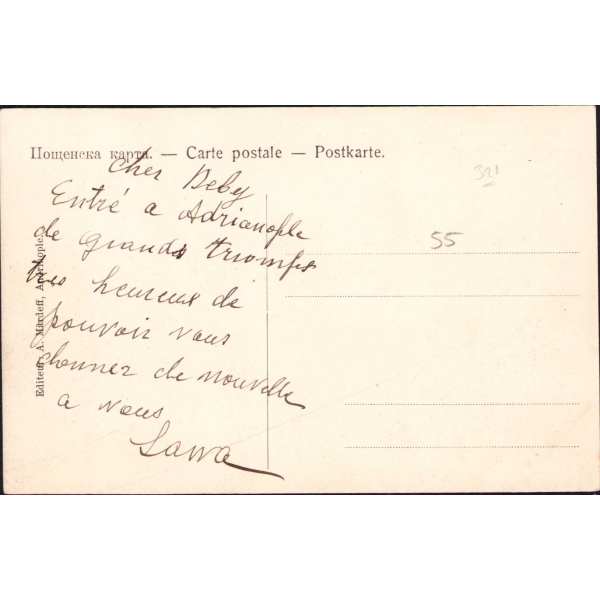 Пощенска карта. — Carte postale — Postkarte.
321
55
Cher Beby
Entré a Adrianople
de grands triomfes
heureux de
pouvoir vous
donner de nouvelle
a vous
Sawa
Editeur: A. Mardeff, Andrinople.